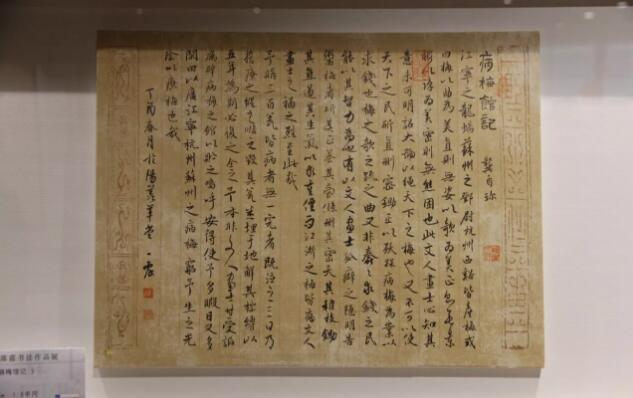 病梅館記 龔自珍
江寧之龍蟠蘇州之鄧尉杭州西谿皆產梅或
曰梅以曲為美直則無姿以欹為美正則無景
疏為美密則無態固也此文人畫士心知其
意未可明詔大號以繩天下之梅也又不可以使
天下之民斫直刪密鋤正以殀梅病梅為業以
求錢也梅之欹之疏之曲又非蠢蠢求錢之民
能以其智力為也有以文人畫士孤癖之隱明告
鬻梅者斫其正養其旁條刪其密夭其稚枝鋤
其直遏其生氣以求重價而江浙之梅皆病文人
畫士之禍之烈至此哉
予購三百盆皆病者無一完者既泣之三日乃
誓療之縱之順之毀其盆悉埋于地解其棕縛以
五年為期必復之全之予本非文人畫士甘受詬
厲辟病梅之館以貯之嗚乎安得使予多暇日又多
閒田以廣江寧杭州蘇州之病梅窮予生之光
陰以療梅也哉
丁酉春月於陽羨草堂 一
书法作品展
病梅馆记